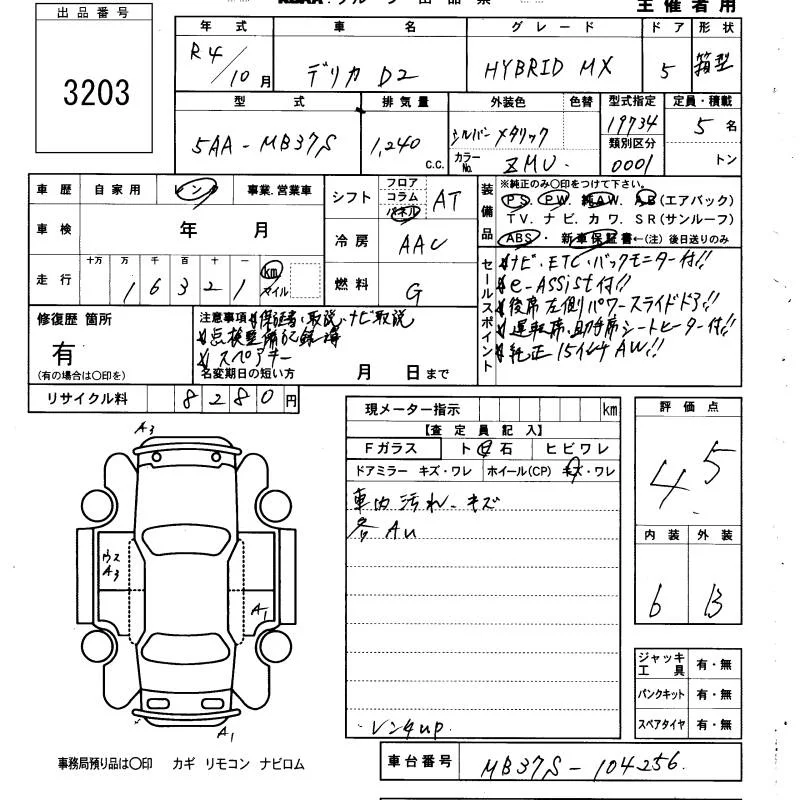 主催者用
出品番号
3203
年式 車名 グレード ドア 形状
R4/10月 デリカ D2 HYBRID MX 5 箱型
型式 排気量 外装色 色替 型式指定 定員・積載
5AA-MB37S 1,240 c.c. シルバーメタリック 19734 5名
カラーNo. ZMU. 類別区分 0001 トン
車歴 自家用 レンタ 事業.営業車
シフト フロア コラム パネル AT
装備品 ※純正のみ〇印をつけて下さい。
PS. PW. 純AW. AB(エアバック)
TV. ナビ. カワ. SR(サンルーフ)
ABS・ 新車保証書←(注)後日送りのみ
車検 年 月
冷房 AAC
走行 十万 万 千 百 十 一
16321 km マイル
燃料 G
セールスポイント
ナビ・ETC・バックモニター付!!
e-Assist付!!
後席左側パワースライドドア!!
運転席・助手席シートヒーター付!!
純正15インチAW!!
修復歴 箇所
有
(有の場合は〇印を)
注意事項 保証書・取説・ナビ取説
点検整備記録簿
スペアキー
名変期日の短い方 月 日まで
リサイクル料 8280円
現メーター指示 km
【査定員記入】
Fガラス ト 石 ヒビワレ
ドアミラー キズ・ワレ ホイール(CP) キズ・ワレ
車内汚れ・キズ
各AU
レンタup.
評価点
4.5
内装 外装
6 B
A3
ウス
A3
A1
A1
ジャッキ 工具 有・無
パンクキット 有・無
スペアタイヤ 有・無
事務局預り品は〇印 カギ リモコン ナビロム
車台番号 MB37S-104256.